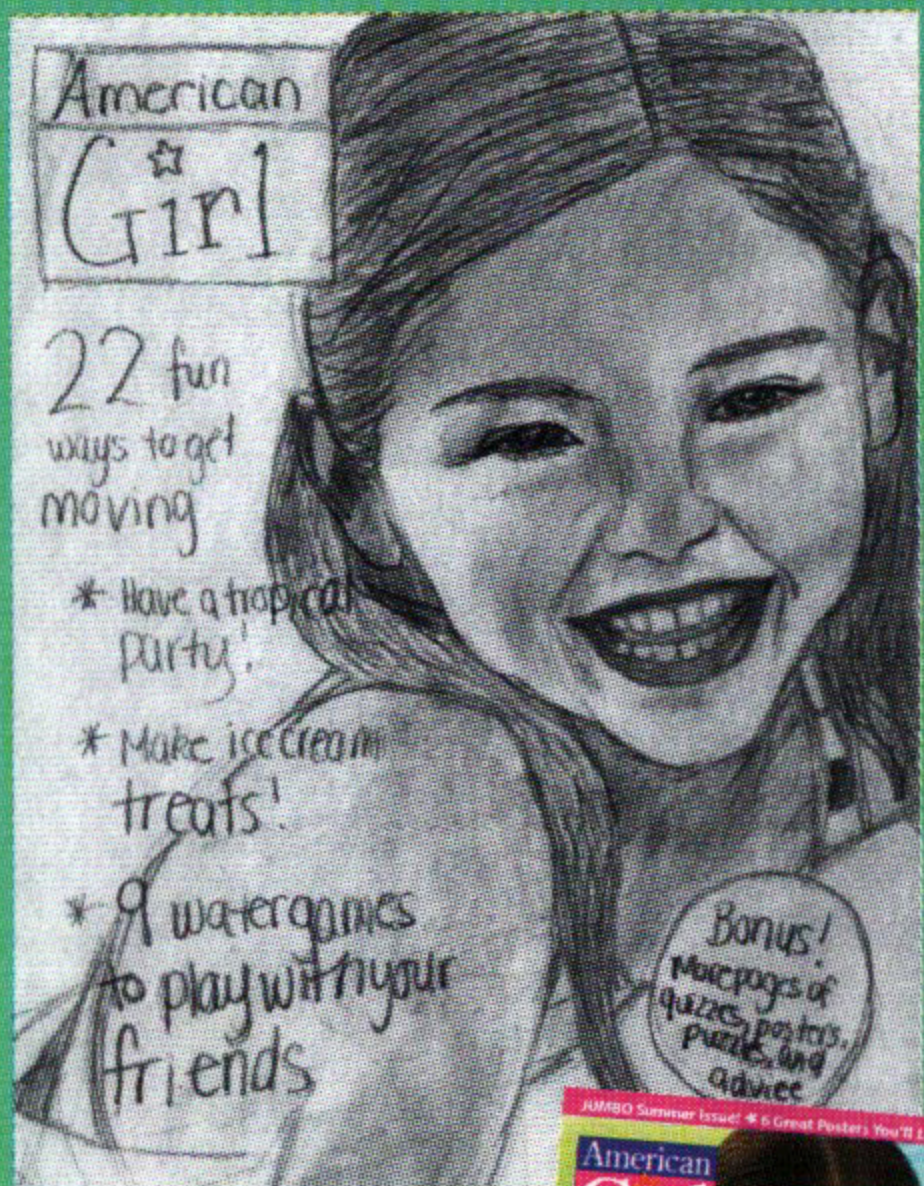 American
Girl
22 fun
ways to get
moving
* Have a tropical
party!
* Make ice cream
treats!
* 9 watergames
to play with your
friends
Bonus!
More pages of
quizzes, posters,
puzzles, and
advice
JUMBO Summer Issue! * 6 Great Posters You'll
American